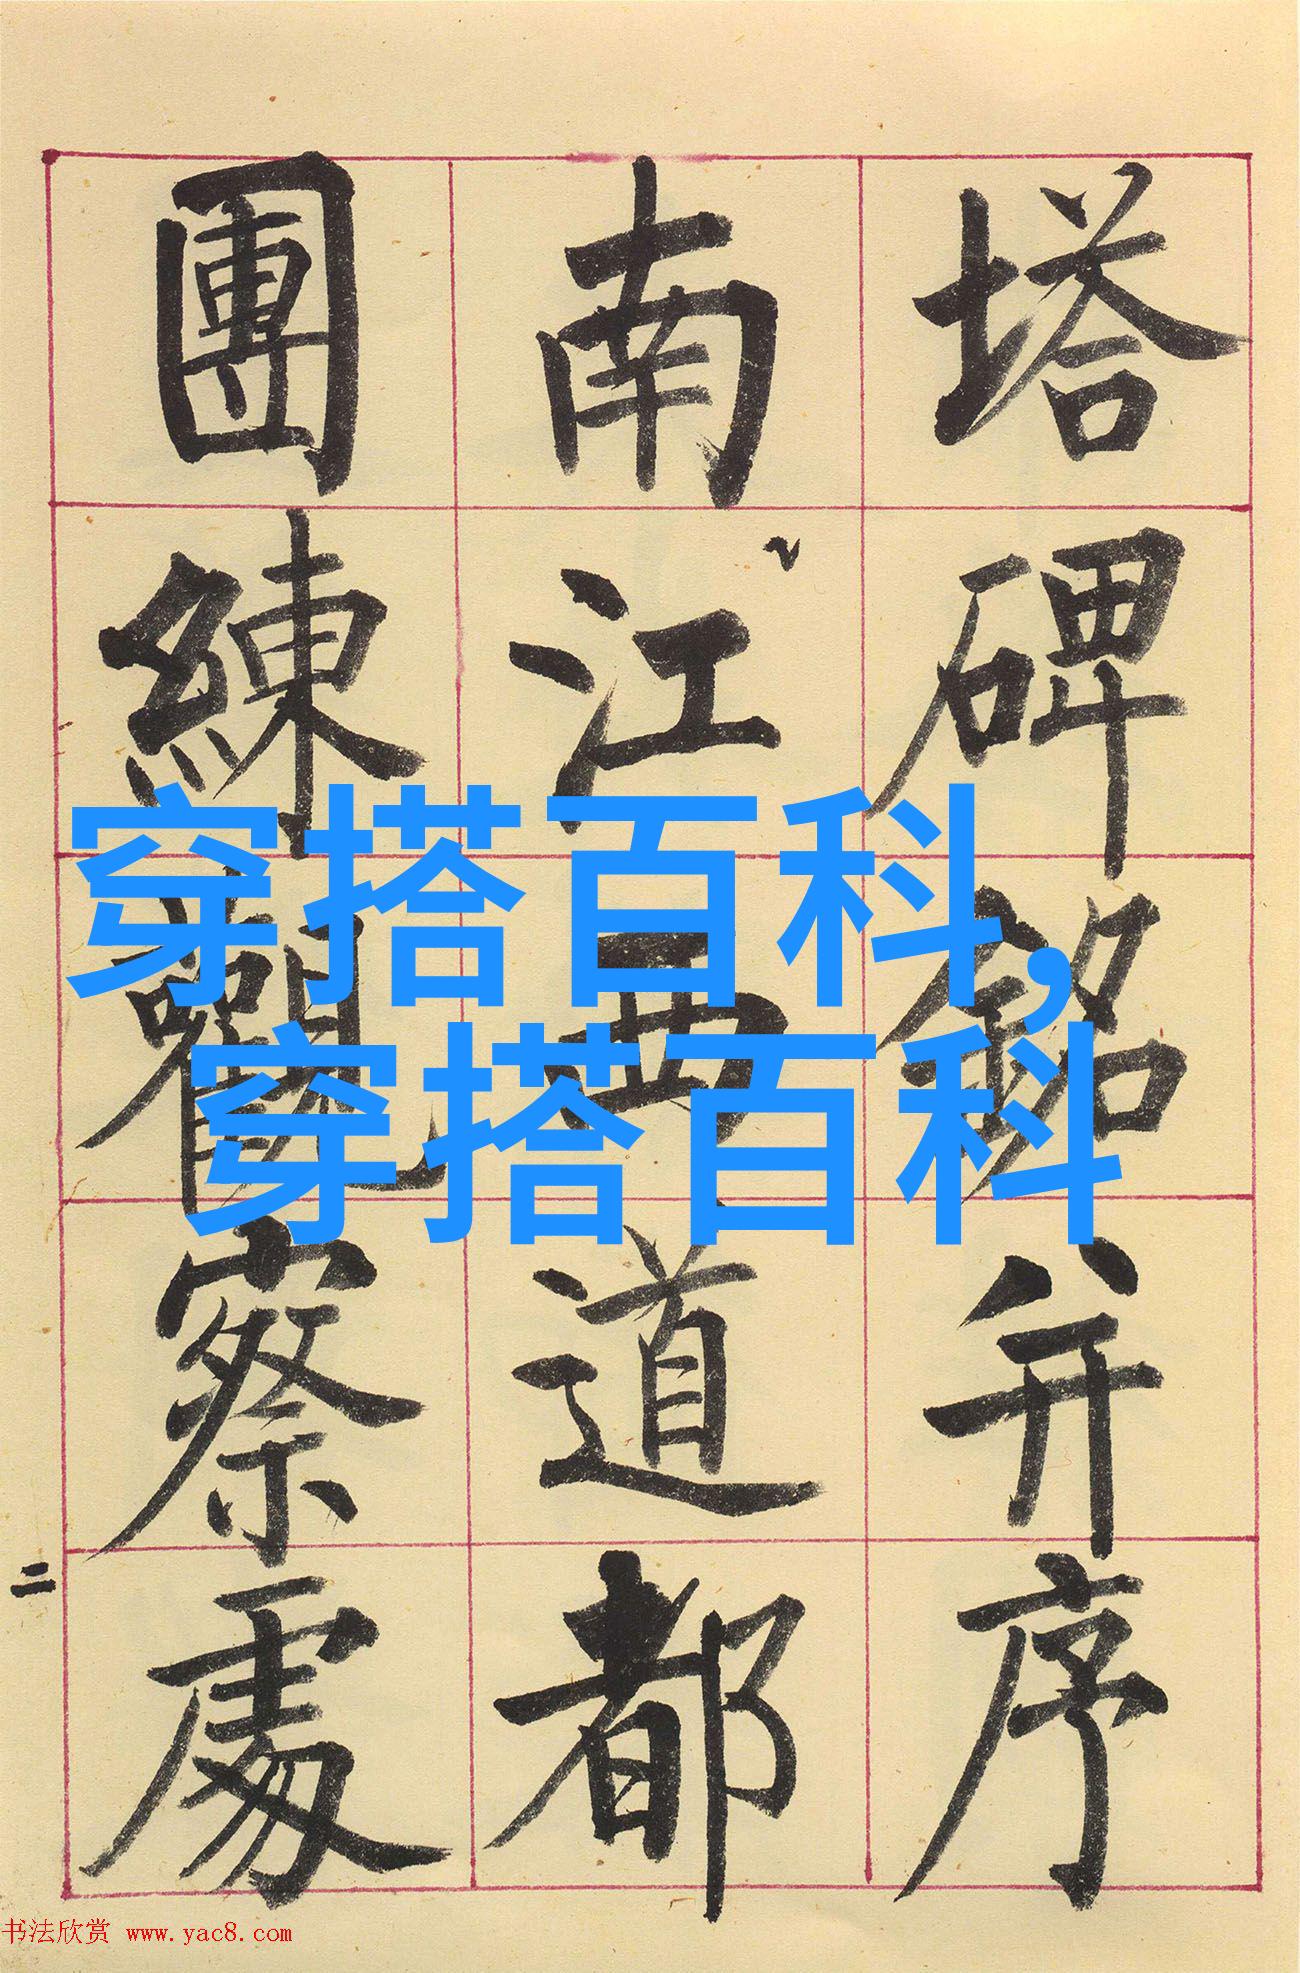 塔碑銘并序
南江西道都
團練觀察處
二
穿搭百科,
穿搭百科
书法欣赏 www.yac8.com